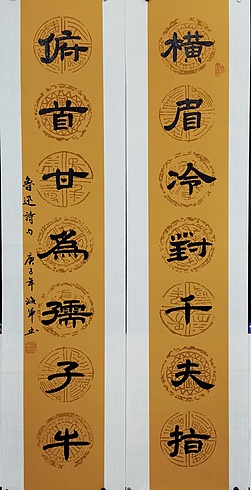 橫眉冷對千夫指
俯首甘為孺子牛
魯迅詩句 庚子年